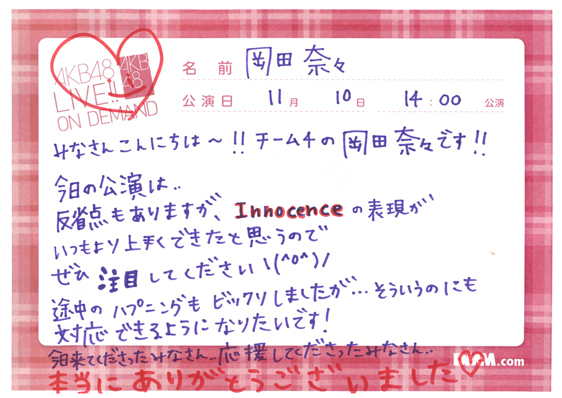 AKB48
LIVE!!
ON DEMAND
AKB
48
名 前 岡田 奈々
公演日 11月 10日 14:00 公演
みなさんこんにちは〜!! チーム4の 岡田 奈々です!!
今日の公演は..
反省点もありますが、Innocence の表現が
いつもより上手くできたと思うので
ぜひ 注目してください \(^o^)/
途中の ハプニングも ビックリしましたが... そういうのにも
対応できるようになりたいです!
今日来てくださったみなさん.. 応援してくださったみなさん..
本当に ありがとうございました♡
DMM.com